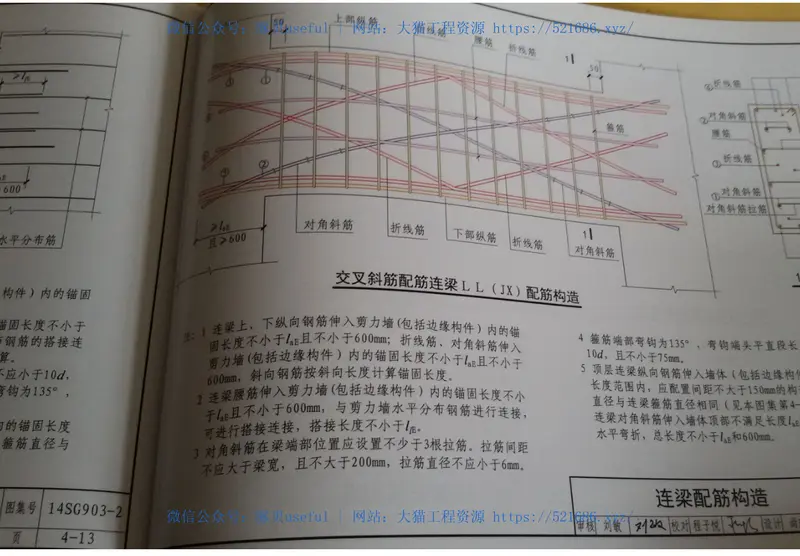 微信公众号：猫贝useful | 网站：大猫工程资源 https://521686.xyz/
50
上部纵筋
折线筋
腰筋
折线筋
1
50
箍筋
①
②
①
②
≥lₐE
且≥600
对角斜筋
折线筋
下部纵筋
折线筋
1
对角斜筋
交叉斜筋配筋连梁LL（JX）配筋构造
注：1 连梁上、下纵向钢筋伸入剪力墙(包括边缘构件）内的锚
固长度不小于lₐE且不小于600mm；折线筋、对角斜筋伸入
剪力墙(包括边缘构件）内的锚固长度不小于lₐE且不小于
600mm，斜向钢筋按斜向长度计算锚固长度。
2 连梁腰筋伸入剪力墙(包括边缘构件）内的锚固长度不小
于lₐE且不小于600mm，与剪力墙水平分布钢筋进行连接，
可进行搭接连接，搭接长度不小于lₗE。
3 对角斜筋在梁端部位置应设置不少于3根拉筋。拉筋间距
不应大于梁宽，且不大于200mm，拉筋直径不应小于6mm。
4 箍筋端部弯钩为135°、弯钩端头平直段长
10d，且不小于75mm。
5 顶层连梁纵向钢筋伸入墙体（包括边缘构件
长度范围内，应配置间距不大于150mm的构
直径与连梁箍筋直径相同（见本图集第4-
连梁对角斜筋伸入墙体顶部不满足长度lₐE
水平弯折，总长度不小于lₐE和600mm。
①折线筋
②对角斜筋
腰筋
③折线筋
①对角斜筋
对角斜筋拉筋
连梁配筋构造
审核 刘敏 校对 程子悦 设计
≥lₗE
600
水平分布筋
构件）内的锚固
锚固长度不小于
布钢筋的搭接连
算。
不应小于10d，
弯钩为135°，
内的锚固长度
箍筋直径与
图集号 14SG903-2
页 4-13
微信公众号：猫贝useful | 网站：大猫工程资源 https://521686.xyz/